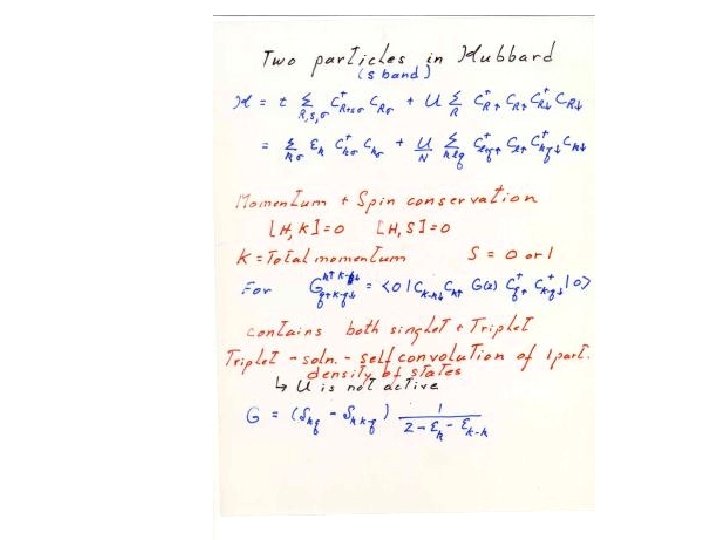 Two particles in Hubbard
(s band)
H = t Σ_{R,s,σ} C†_{R+sσ} C_{Rσ} + U Σ_R C†_{R↑} C_{R↑} C†_{R↓} C_{R↓}
= Σ_{kσ} ε_k C†_{kσ} C_{kσ} + U/N Σ
Momentum + Spin conservation
[H,K]=0 [H,S]=0
K = Total momentum S = 0 or 1
For G = <0| C_{K-k↓} C_{k↑} G(z) C†_{q↑} C†_{K-q↓} |0>
contains both singlet + Triplet
Triplet - soln. - self convolution of 1 part.
density of states
↳ U is not active
G = (δ_{kq} - δ_{k K-q}) 1 / (Z - ε_k - ε_{K-k})